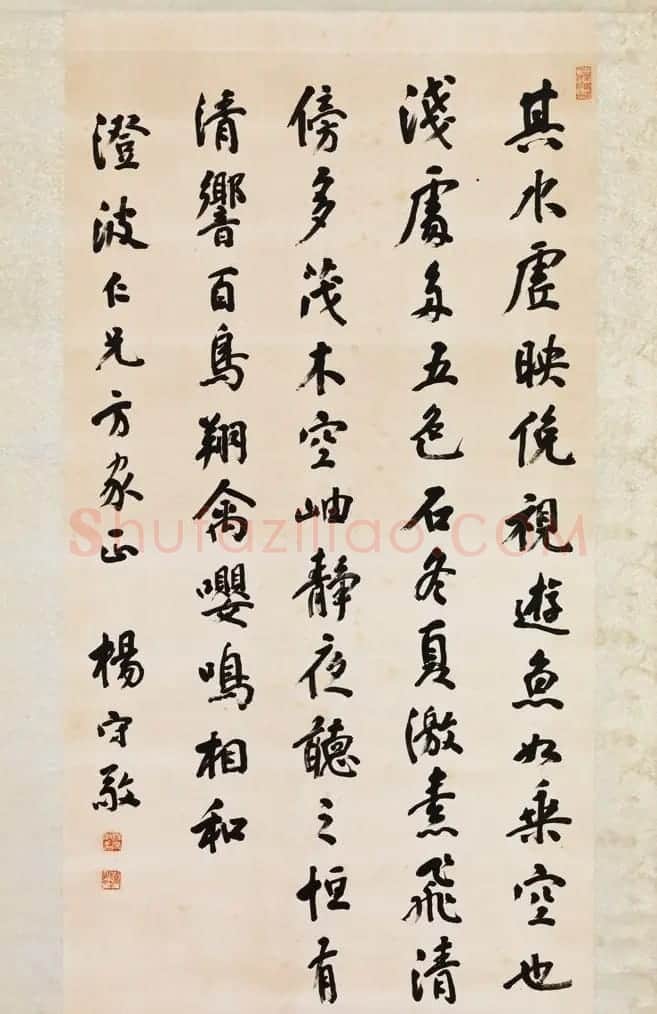 其水虛映俛視遊魚如乘空也
淺處多五色石冬夏激素飛清
傍多茂木空岫靜夜聽之恒有
清響百鳥翔禽嚶鳴相和
澄波仁兄方家正 楊守敬
Shufaziliao.COM